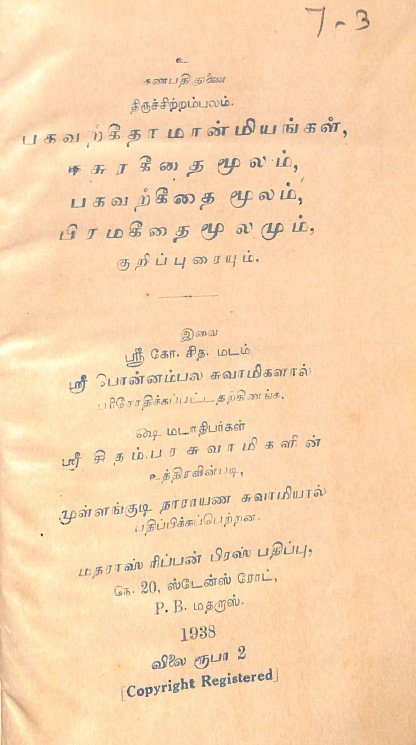 7-3
உ
கணபதி துணை
திருச்சிற்றம்பலம்.
பகவற்கீதாமான்மியங்கள்,
ஈசுரகீதை மூலம்,
பகவற்கீதை மூலம்,
பிரமகீதை மூலமும்,
குறிப்புரையும்.
இவை
ஸ்ரீ கோ. சித. மடம்
ஸ்ரீ பொன்னம்பல சுவாமிகளால்
பரிசோதிக்கப்பட்டதற்கிணங்க,
ஷை மடாதிபர்கள்
ஸ்ரீ சிதம்பரசுவாமிகளின்
உத்திரவின்படி,
முள்ளங்குடி நாராயண சுவாமியால்
பதிப்பிக்கப்பெற்றன.
மதராஸ் ரிப்பன் பிரஸ் பதிப்பு,
நெ. 20, ஸ்டேன்ஸ் ரோட்,
P. B. மதறாஸ்.
1938
விலை ரூபா 2
[Copyright Registered]